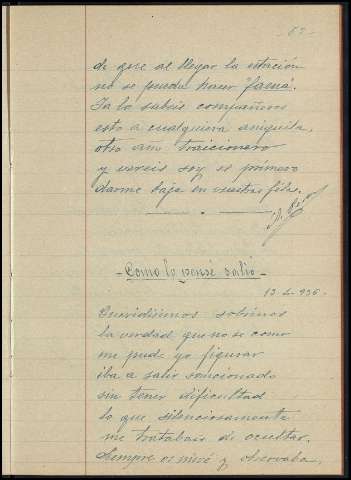 de que al llegar la estación
no se pueda hacer "fama".
Ya lo sabeis compañeros
esto a cualquiera aniquila,
otro año traicionero
y vereis soy el primero
darme baja en vuestras filas.
Como lo pensé salió
Queridísimos sobrinos
la verdad que no se como
me pude yo figurar
iba a salir sancionado
sin tener dificultad
lo que silenciosamente
me tratabais de ocultar.
Siempre os miré y observaba